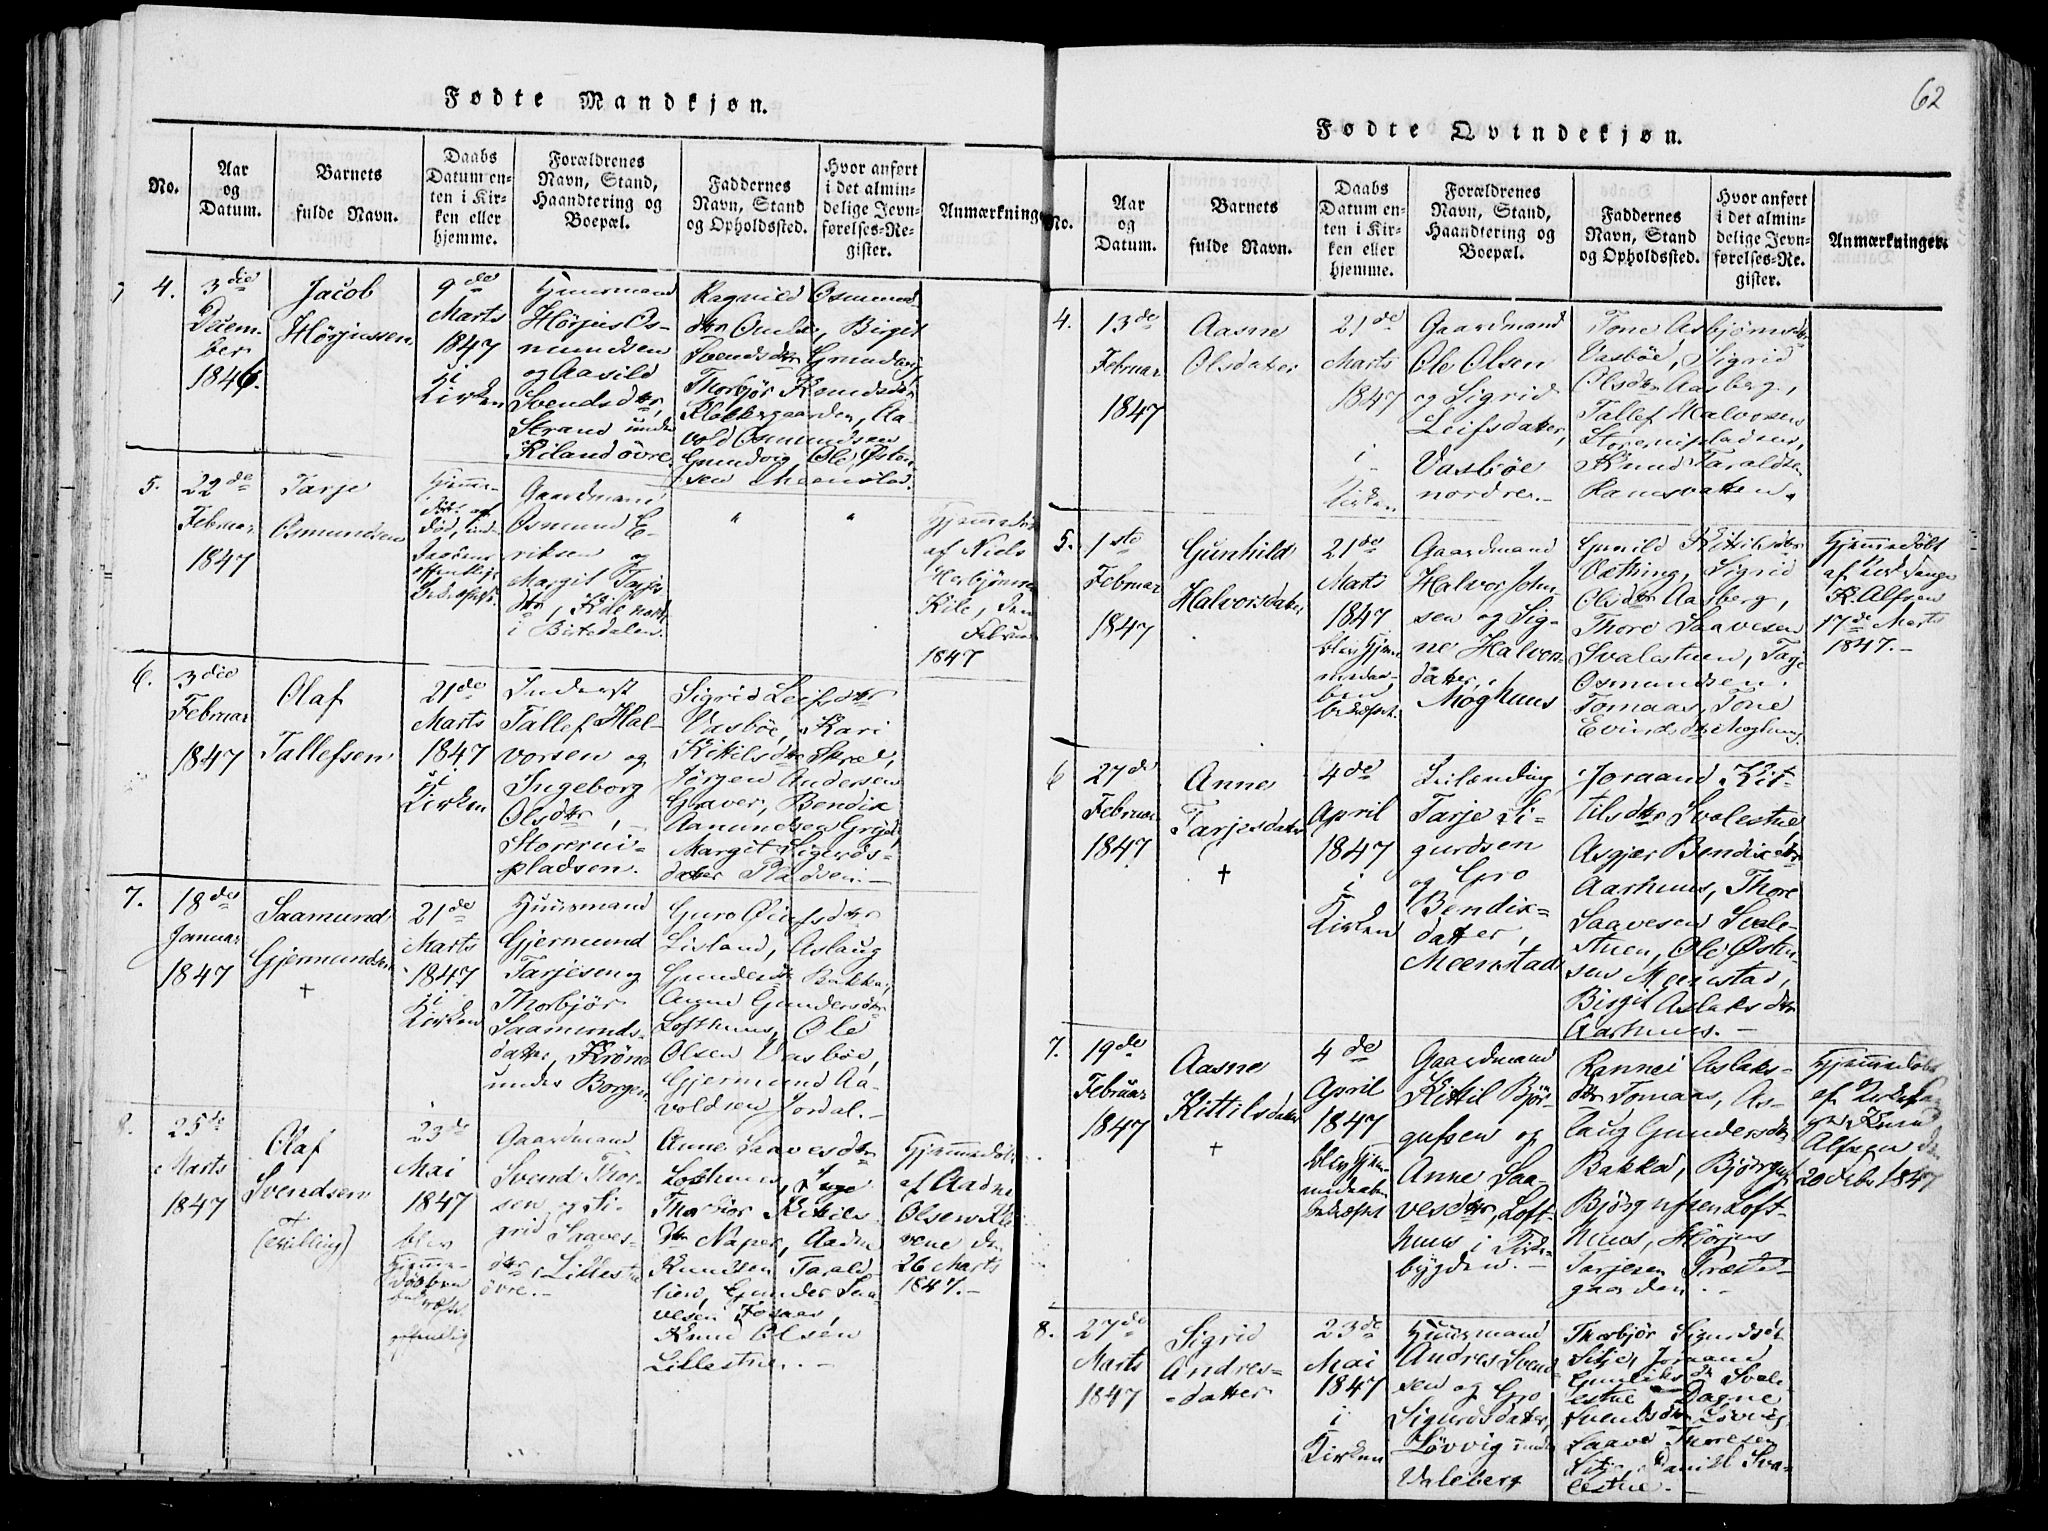 62
Fødte Mandkjøn.
No.
Aar
og
Datum.
Barnets
fulde Navn.
Daabs
Datum en-
ten i Kir-
ken eller
hjemme.
Forældrenes
Navn, Stand,
Haandtering og
Boepæl.
Faddernes
Navn, Stand
og Opholdssted.
Hvor anført
i det almin-
delige Jevn-
førelses-Re-
gister.
Anmærkninger
4.
3die
Decem-
ber
1846.
Jacob
Hørjussen
9de
Marts
1847
i
Kirken
Huusmand
Hørjus Os-
mundsen
og Aasild
Svendsdtr,
Strand under
Kiland øvre
Ragnild Osmund-
dtr Birgit
Svendsdtr Grundvig
Thorbjør Knudsdtr
Klokkergaarden, Aa-
vold Osmundsen
Grundvig Ole Østen-
sen Meenstad.
5.
22de
Februar
1847
Tarje
Osmundsen
Gaardmand
Osmund E-
riksen og
Margit Tarjes
dtr, Kile nordre
i Bistedalen.
"
"
Hjemmedøbt
af Niels
Herbjørnsen
Kile, den
Februar
1847
6.
3die
Februar
1847
Olaf
Tallefsen
21de
Marts
1847
i
Kirken
Inderst
Tallef Hal-
vorsen og
Ingeborg
Olsdtr,
Storemi-
pladsen.
Sigrid Leifsdtr
Vasbøe, Kari
Kittilsdtr Skræi,
Jørgen Andersen
Graver, Bendix
Aamundsen
Margit Sigurds-
datter Pladsen.—
7.
18de
Januar
1847
Saamund
Gjermundsen
+
21de
Marts
1847
i
Kirken
Huusmand
Gjermund
Tarjesen og
Thorbjør
Saamunds-
datter, Krøne
under Borgen
Guro Olafsdtr
Lisland, Aslaug
Gundersdtr Bakka,
Anne Gundersdtr
Lofthuus, Ole
Olsen Vasbøe,
Gjermund Aa-
voldsen Jordal.—
8.
25de
Marts
1847
Olaf
Svendsen
(Tvilling)
23de
Mai
1847
blev
Hjemme-
daaben
bekræftet
offentlig
Gaardmand
Svend Thor-
sen og Si-
grid Saaves-
dtr, Lillestue
øvre.—
Anne Saavesdtr
Lofthuus, Inge
Thorbjør Kittils-
dtr Naper, Aadne
Knudsen Tarald-
lien, Gunder Saa-
vesen
Knud Olsen
Lillestue.—
Hjemmedøbt
af Aadne
Olsen
den
26 Marts
1847.—
Fødte Qvindekjøn.
No.
Aar
og
Datum.
Barnets
fulde Navn.
Daabs
Datum en-
ten i Kir-
ken eller
hjemme.
Forældrenes
Navn, Stand,
Haandtering og
Boepæl.
Faddernes
Navn, Stand
og Opholdssted.
Hvor anført
i det almin-
delige Jevn-
førelses-Re-
gister.
Anmærkninger.
4.
13de
Februar
1847
Aasne
Olsdatter
21de
Marts
1847
i
Kirken
Gaardmand
Ole Olsen
og Sigrid
Leifsdatter,
Vasbøe
nordre.—
Tone Asbjørnsdtr
Vasbøe, Sigrid
Olsdtr Aasberg,
Tallef Halvorsen
Storemipladsen,
Knud Taraldsen
Ramsvatten.
5.
1ste
Februar
1847
Gunhild
Halvorsdatter
21de
Marts
1847
blev Hjem-
medaa-
ben
bekræftet.
Gaardmand
Halvor John-
sen og Sig-
ne Halvors-
datter,
Møghuus
Gunild Kittilsdtr
Sigrid
Olsdtr Aasberg,
Thore Saavesen
Svalestuen, Tarje
Osmundsen
Tomaas, Tone
Evindsdtr Moghuus.
Hjemmedøbt
af Kirkesanger
K. Alfsen
17de Marts
1847.—
6
27de
Februar
1847
Anne
Tarjesdatter
+
4de
April
1847
i
Kirken
Leilænding
Tarje Si-
gurdsen
og Gro
Bendix-
datter,
Meenstad
Joraand Kit-
tilsdtr Svalestue
Asgjær Bendixdtr
Aarhuus, Thore
Saavesen Svale-
stuen, Ole Østen-
sen Meenstad,
Birgit Aslaksdtr
Aarhuus.—
7.
19de
Februar
1847
Aasne
Kittilsdatter
+
4de
April
1847
blev Hjem-
medaaben
bekræftet
Gaardmand
Kittil Bjør-
gufsen og
Anne Saa-
vesdtr, Loft-
huus i Kirke-
bygden.—
Rannei Aslaks-
dtr Tomaas, As-
laug Gundersdtr
Bakka, Bjørguf
Bjørgufsen Loft-
huus, Hørjus
Tarjesen Præste-
gaarden.—
Hjemmedøbt
af Kirkesan-
ger Knud
Alfsen den
20 Febr 1847
8.
27de
Marts
1847
Sigrid
Andres-
datter
23de
Mai
1847
i
Kirken
Huusmand
Andres Svend-
sen og Gro
Sigurdsdatter,
Løvvig under
Valeberg
Thorbjør Sigurdsdtr
Sitje, Joraand
Svale-
estue Dagne
Svendsdtr Løvvig
Saave Thoresen
Sitje, Daniel Sva-
lestue.—